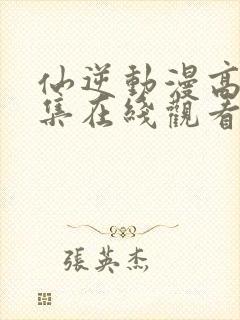 仙逆動漫高
集在綫觀看
張英杰